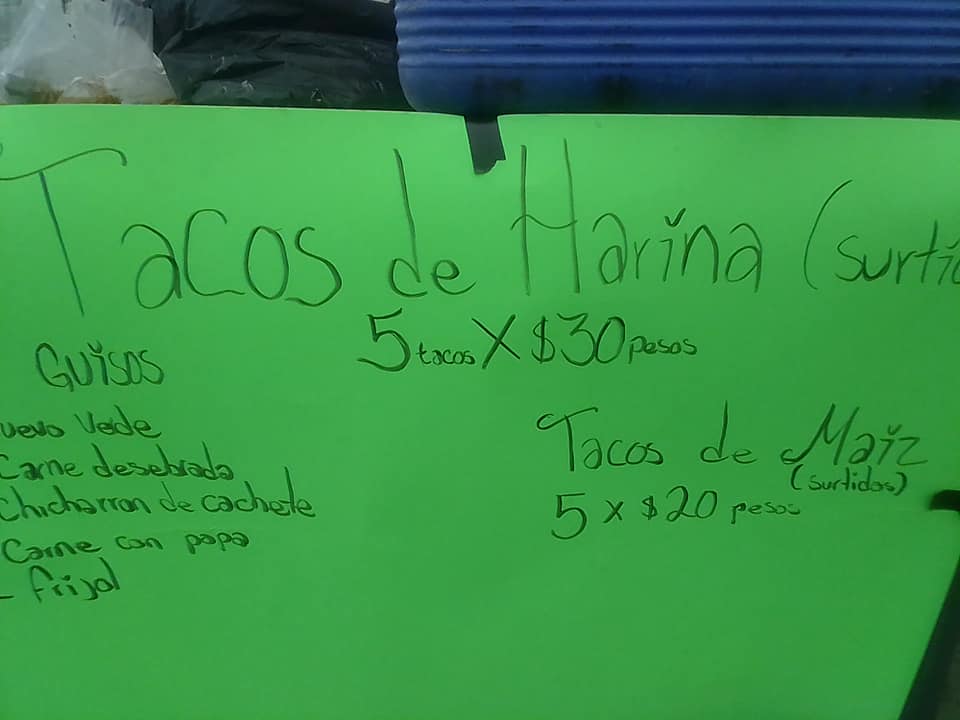 Tacos de Harina (surtid
5 tacos X $30 pesos
Guisos
uevo Vede
Carne desebrada
Chicharron de cachete
Carne con papa
- frijol
Tacos de Maiz
(surtidos)
5 x $20 pesos